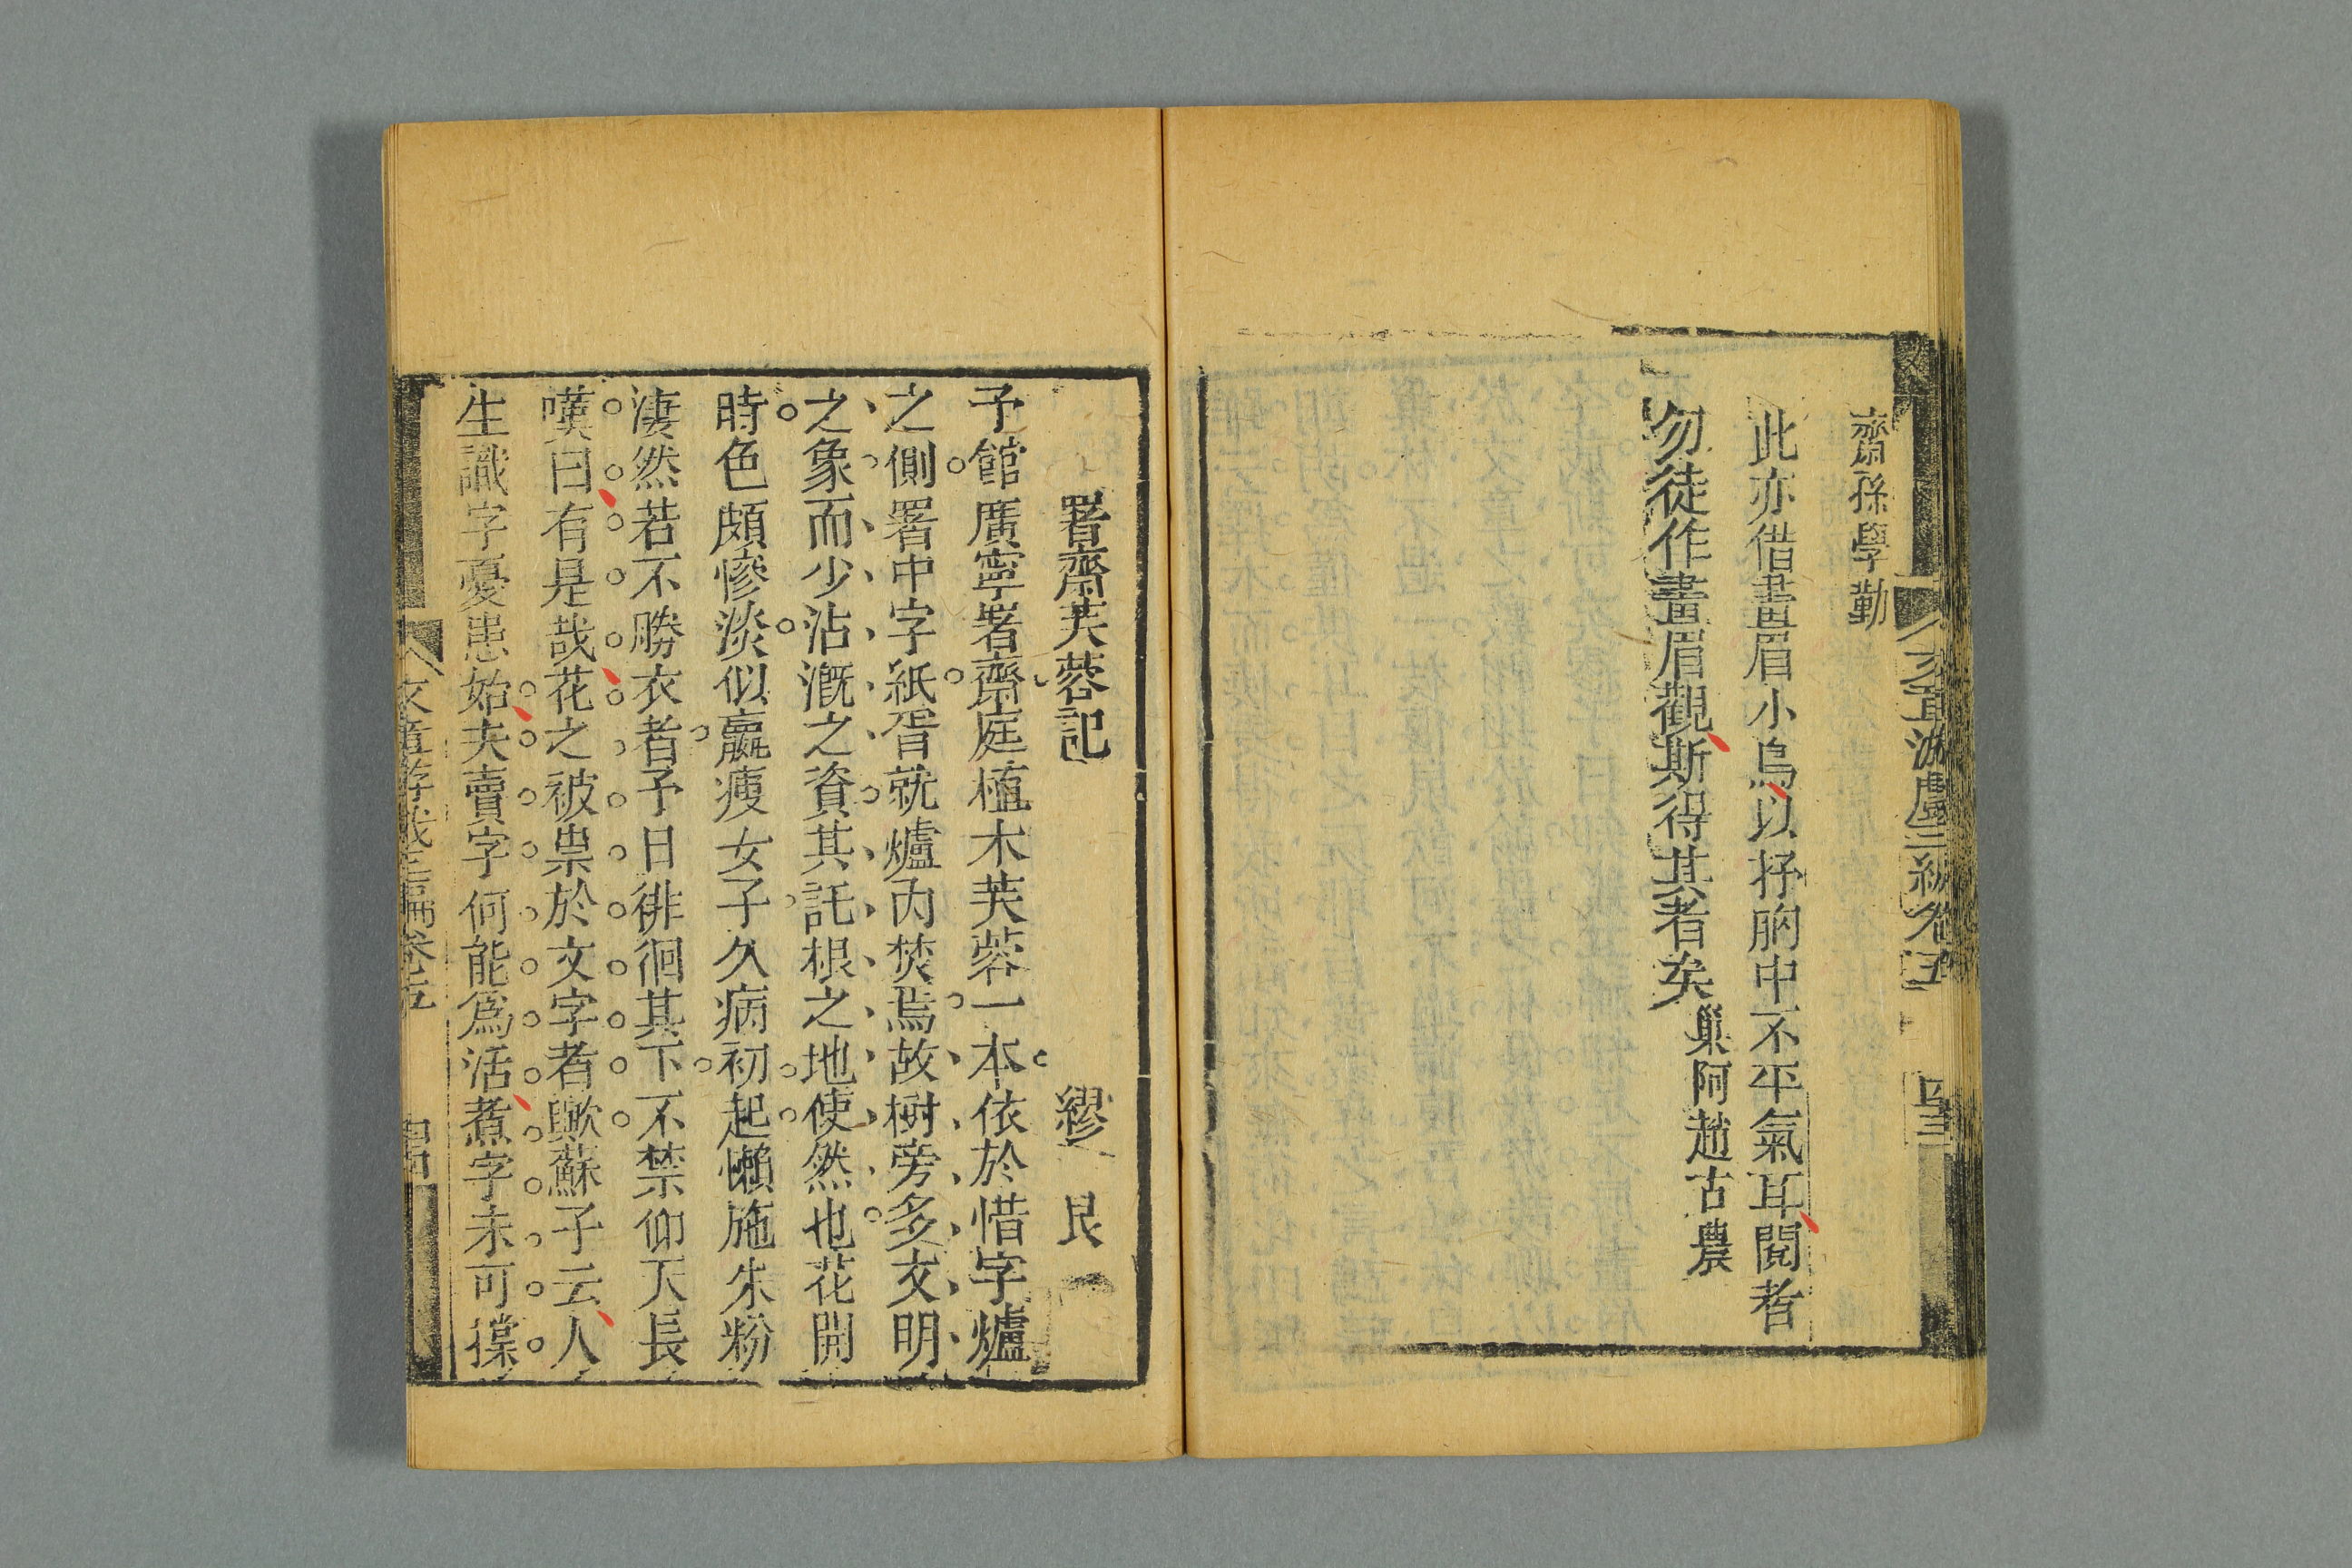 文章游戲三編卷五
四三
齋孫學勤
此亦借畫眉小鳥以抒胸中不平氣耳閱者
勿徒作畫眉觀斯得其者矣巢阿趙古農
署齋芙蓉記
繆艮
予館廣寧署齋庭植木芙蓉一本依於惜字爐
之側署中字紙胥就爐內焚焉故樹旁多文明
之象而少沾漑之資其託根之地使然也花開
時色頗慘淡似羸瘦女子久病初起懶施朱粉
淒然若不勝衣者予日徘徊其下不禁仰天長
嘆曰有是哉花之被祟於文字者歟蘇子云人
生識字憂患始夫賣字何能爲活煮字未可
文章游戲三編卷五
四四